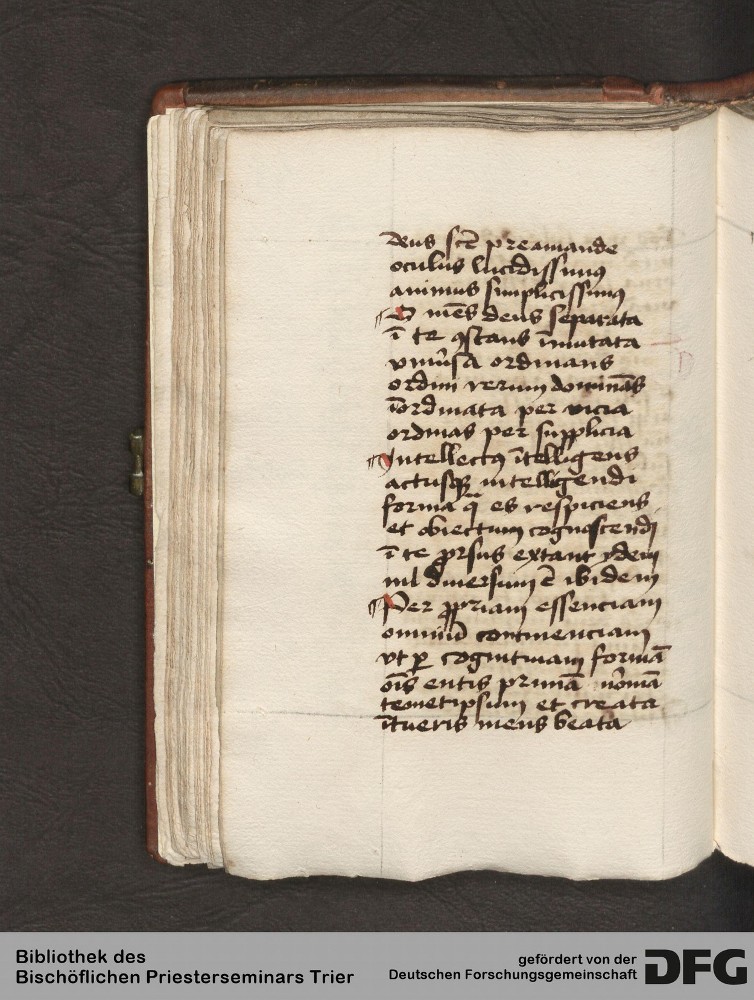 deus scē preamande
oculus lucidissimꝰ
animus simplicissimꝰ
O mēs deus separata
ī te ꝯstans īmutata
vniũsa ordinans
ordini rerum dominās
īordinata per vicia
ordinas per supplicia
Intellectꝰ ītelligens
actusqꝫ intelligendi
forma q̄ es respiciens
et obiectum cognoscendi
ī te ꝓrsus extant ydem
nil diuersum ē ibidem
Per ꝓpriam essenciam
omniū continenciam
vt ꝑ cognitiuam formā
oīs entis primā nōmā
temetipsum et creata
ītueris mens beata
Bibliothek des
Bischöflichen Priesterseminars Trier
gefördert von der
Deutschen Forschungsgemeinschaft
DFG